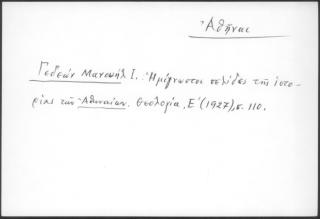 Ἀθῆναι
Γεδεὼν Μανουὴλ Ι. Ἡμίγνωστοι σελίδες τῆς ἱστο-
ρίας τῶν Ἀθηναίων. Θεολογία, Ε´ (1927), σ. 110.